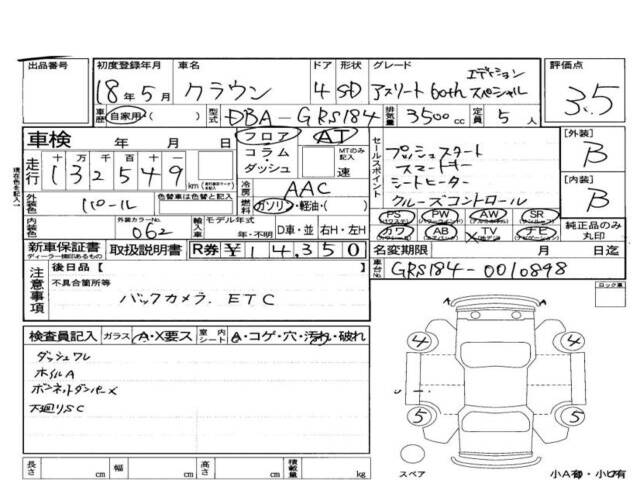 出品番号
初度登録年月 車名 ドア 形状 グレード 評価点
18年5月 クラウン 4 SD アスリート60thスペシャル
エディション
3.5
車歴 自家用( ) 型式 DBA-GRS184 排気量 3500cc 定員 5人
車検 年 月 日
フロア AT
コラム・ダッシュ
MTのみ記入 速
走行 十万 万 千 百 十 一
132549 km
冷房 AAC
燃料 ガソリン・軽油・( )
外装色 パール 色替車は色替と元色
内装色 外装カラーNo. 062 輸入車 モデル年式 年・不明 D車・並 右H・左H
セールスポイント
プッシュスタート
スマートキー
シートヒーター
クルーズコントロール
PS PW AW SR
カワ AB TV ナビ
[外装]
B
[内装]
B
純正品のみ丸印
新車保証書 取扱説明書 R券 ¥14,350
ディーラー捺印あるもの
名変期限 月 日迄
車台No. GRS184-0010898
注意事項
後日品【 】
不具合箇所等
バックカメラ. ETC
ロック車
検査員記入 ガラス A・X要ス 室内シート A・コゲ・穴・汚れ・破れ
ダッシュワレ
ホイルA
ボンネットダンパーX
下廻りSC
4 4
5 5
スペア
長さ cm 幅 cm 高さ cm 積載量 kg
小A・小U有